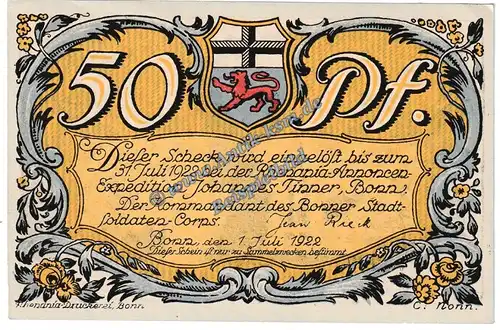 50 Pf.
Dieser Scheck wird eingelöst bis zum
31. Juli 1922 bei der Rhenania-Annoncen-
Expedition Johannes Tinner, Bonn.
Der Kommandant des Bonner Stadt-
soldaten-Corps. Jean Rieck
Bonn, den 1. Juli 1922
Dieser Schein ist nur zu Sammelzwecken bestimmt
Rhenania-Druckerei, Bonn. C. Nonn.